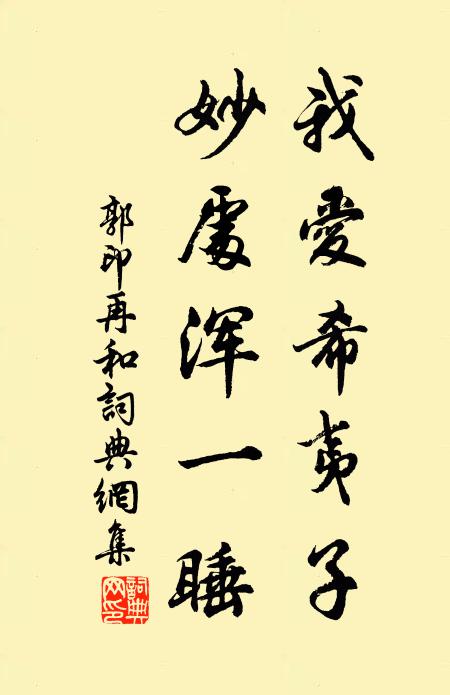 我愛希夷子
妙處浑一睡
郭印再和詞典網集
詞典網印